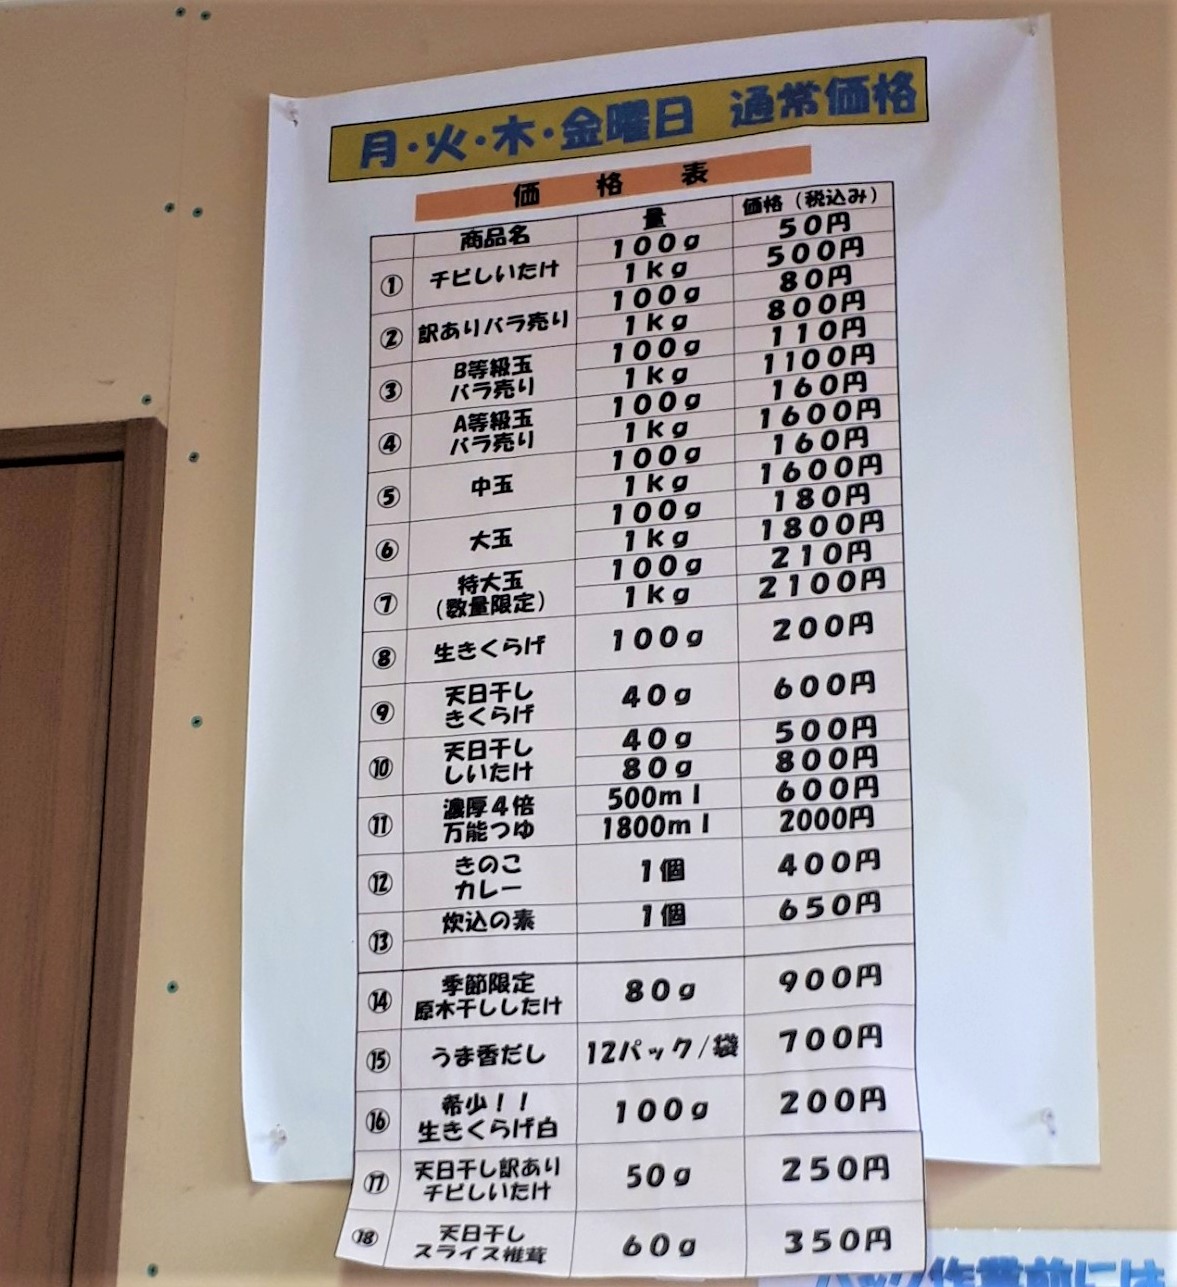 月・火・木・金曜日 通常価格
価 格 表
商品名 量 価格（税込み）
① チビしいたけ 100g 50円
1kg 500円
② 訳ありバラ売り 100g 80円
1kg 800円
③ B等級玉 100g 110円
バラ売り 1kg 1100円
④ A等級玉 100g 160円
バラ売り 1kg 1600円
⑤ 中玉 100g 160円
1kg 1600円
⑥ 大玉 100g 180円
1kg 1800円
⑦ 特大玉 100g 210円
（数量限定） 1kg 2100円
⑧ 生きくらげ 100g 200円
⑨ 天日干し
きくらげ 40g 600円
⑩ 天日干し 40g 500円
しいたけ 80g 800円
⑪ 濃厚４倍 500ml 600円
万能つゆ 1800ml 2000円
⑫ きのこ
カレー 1個 400円
⑬ 炊込の素 1個 650円
⑭ 季節限定
原木干ししたけ 80g 900円
⑮ うま香だし 12パック/袋 700円
⑯ 希少！！
生きくらげ白 100g 200円
⑰ 天日干し訳あり
チビしいたけ 50g 250円
⑱ 天日干し
スライス椎茸 60g 350円